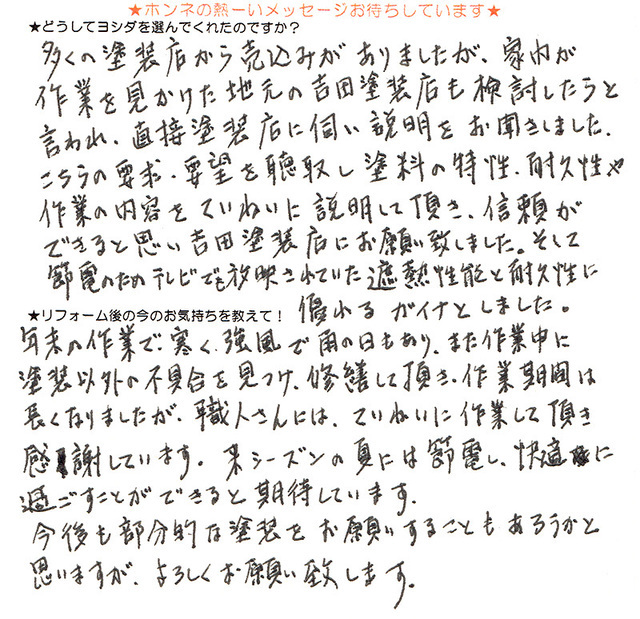 ★ホンネの熱ーいメッセージお待ちしています★
★どうしてヨシダを選んでくれたのですか？
多くの塗装店から売込みがありましたが、家内が
作業を見かけた地元の吉田塗装店も検討したらと
言われ、直接塗装店に伺い説明をお聞きしました。
こちらの要求・要望を聴取し塗料の特性、耐久性や
作業の内容をていねいに説明して頂き、信頼が
できると思い吉田塗装店にお願い致しました。そして
節電のためテレビでも放映されていた遮熱性能と耐久性に
優れるガイナとしました。
★リフォーム後の今のお気持ちを教えて！
年末の作業で寒く、強風で雨の日もあり、また作業中に
塗装以外の不具合を見つけ、修繕して頂き、作業期間は
長くなりましたが、職人さんには、ていねいに作業して頂き
感謝しています。来シーズンの夏には節電し、快適に
過ごすことができると期待しています。
今後も部分的な塗装をお願いすることもあろうかと
思いますが、よろしくお願い致します。